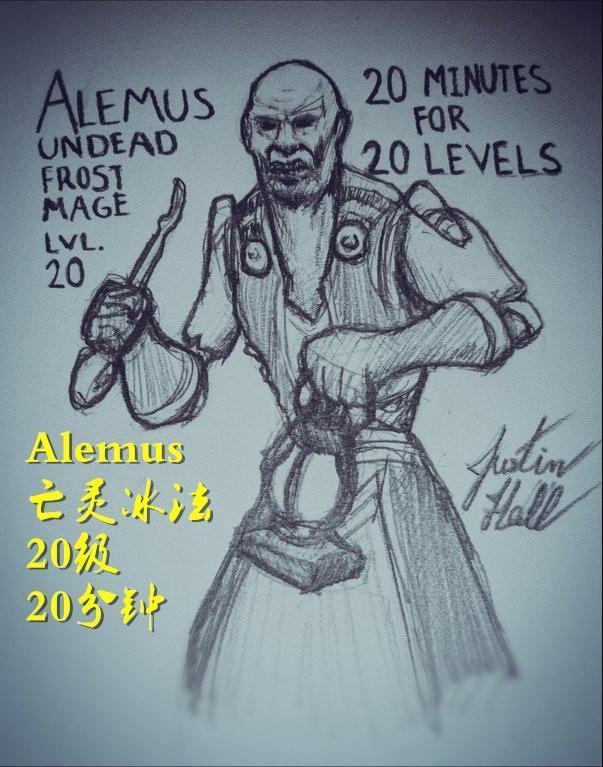 ALEMUS
UNDEAD
FROST
MAGE
LVL.
20
20 MINUTES
FOR
20 LEVELS
Alemus
亡灵冰法
20级
20分钟
Justin
Hall